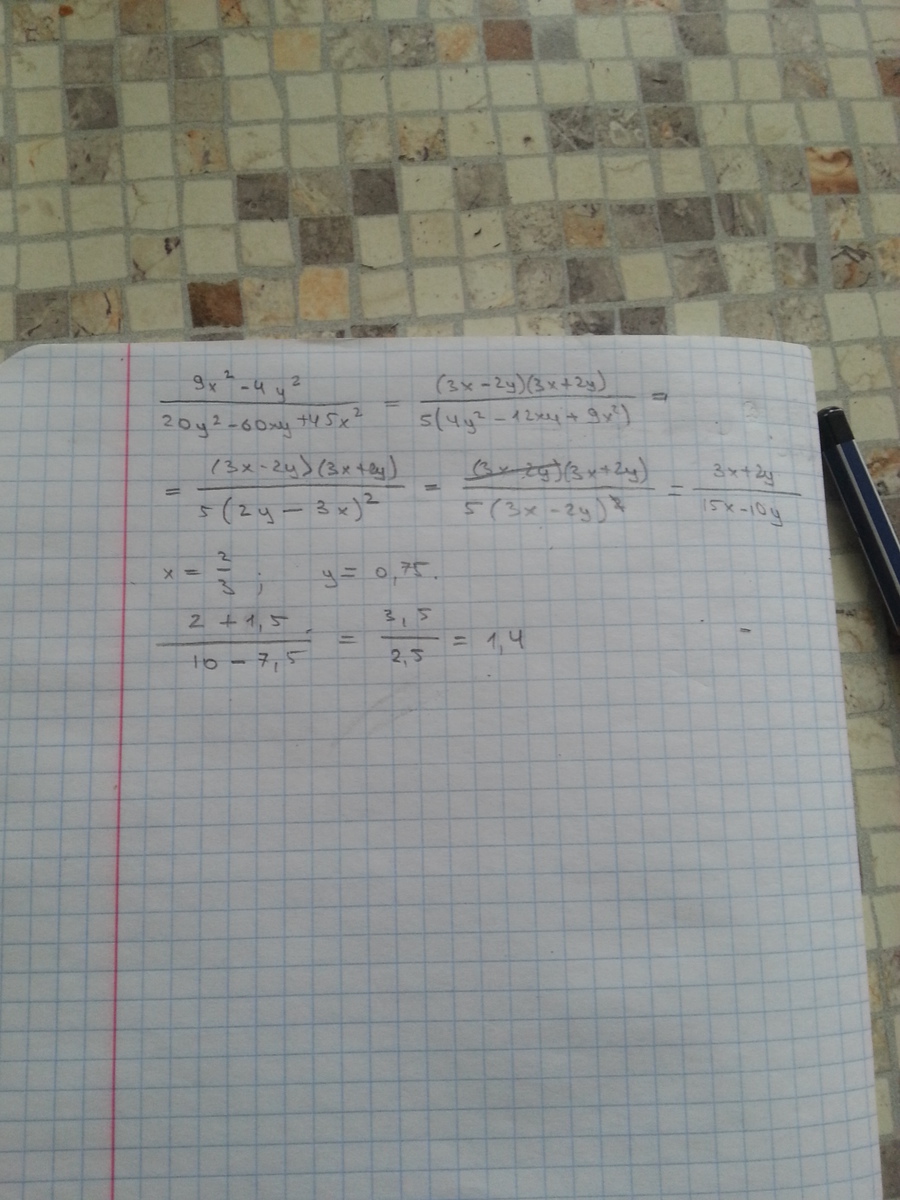 (9x² - 4y²)/(20y² - 60xy + 45x²) = ((3x - 2y)(3x + 2y))/(5(4y² - 12xy + 9x²)) =
= ((3x - 2y)(3x + 2y))/(5(2y - 3x)²) = ((3x - 2y)(3x + 2y))/(5(3x - 2y)²) = (3x + 2y)/(15x - 10y)
x = 2/3 ; y = 0,75.
(2 + 1,5)/(10 - 7,5) = 3,5/2,5 = 1,4